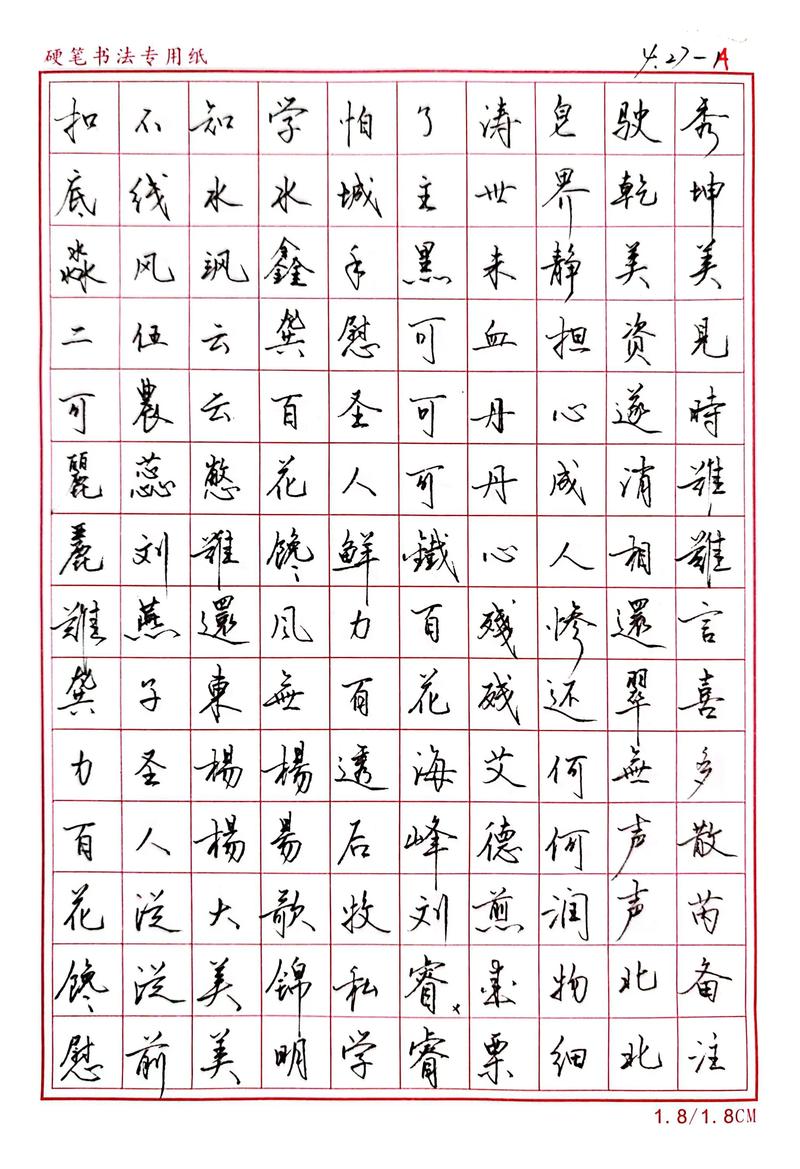 硬笔书法专用纸
4.27-1A
扣不知学怕了涛皂驶秀
底线水水城主世界乾坤
淼风飒鑫手黑未静美美
二伍云龚慰可血担资见
可農云百圣可丹心遂時
麗蕊憋花人可丹成消難
麗刘難馋鮮鐵心人相難
難燕還风力百殘惨還言
龚子東無百花残还翠喜
力圣楊楊透海艾何無多
百人楊昜后峰德何声散
花從大歌牧刘煎润声芮
馋從美锦私睿物北备
慰前美明学睿栗细北注
1.8/1.8CM